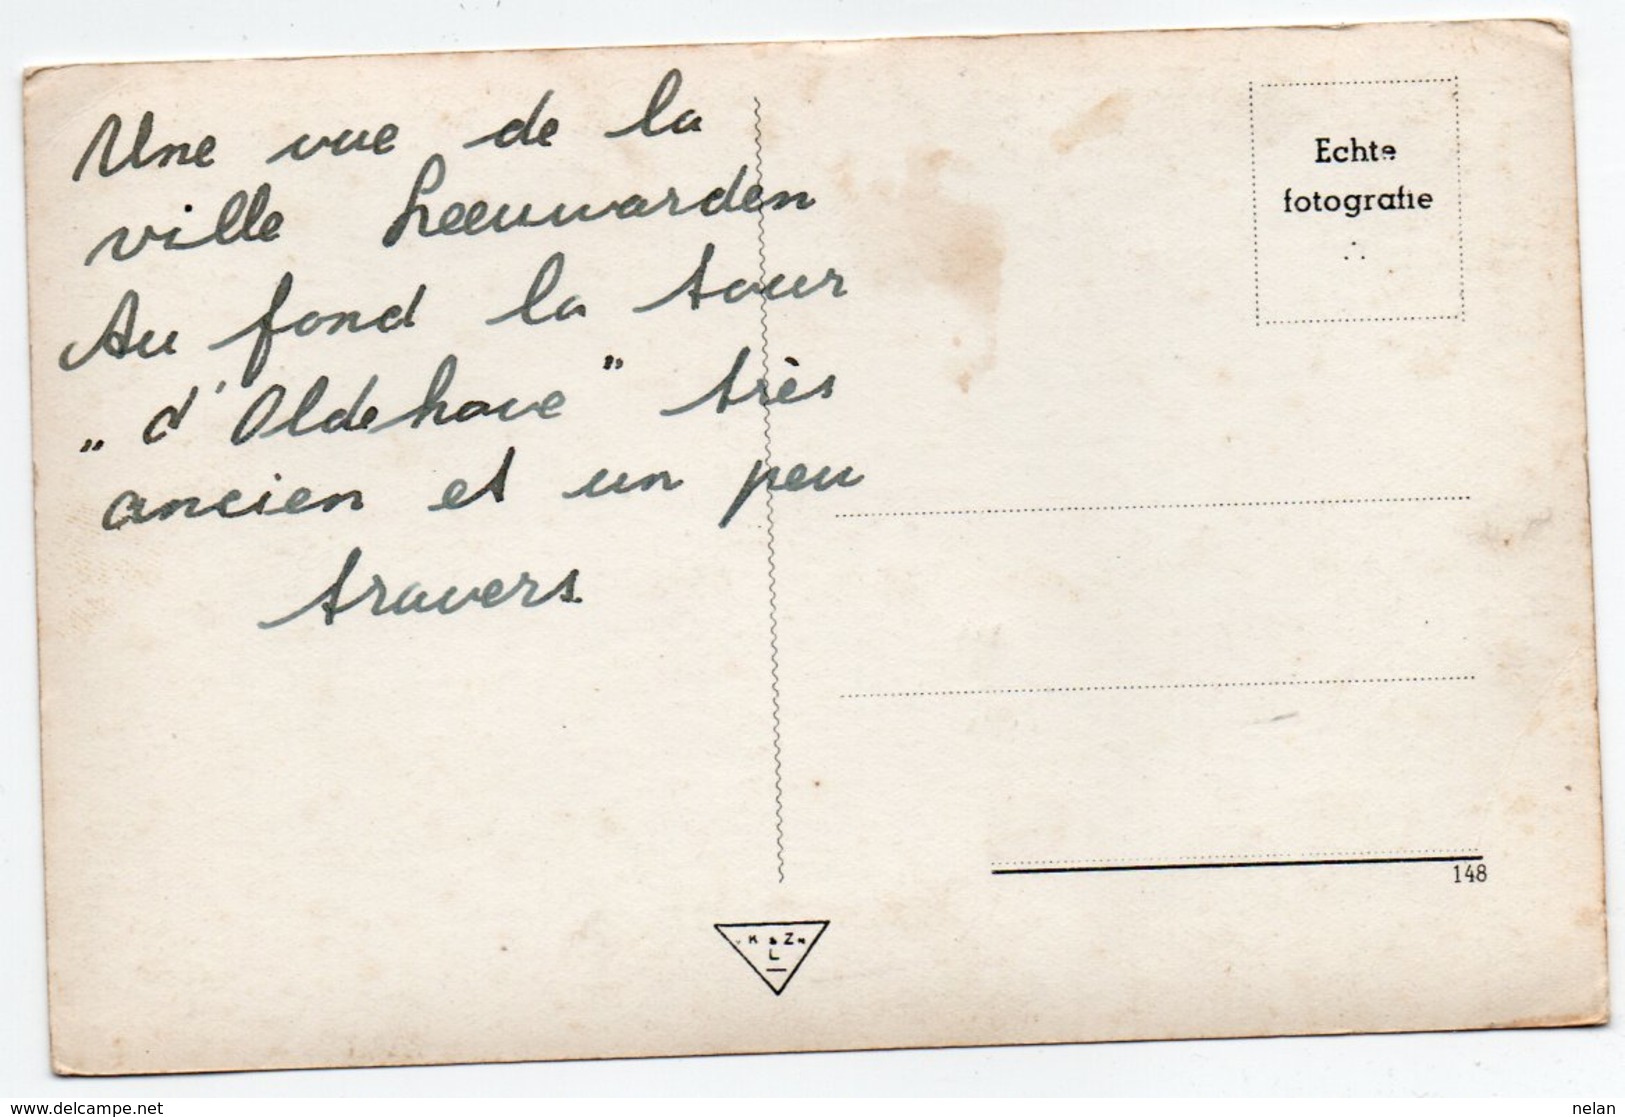 Une vue de la
ville Leeuwarden
Au fond la tour
„d'Oldehove" très
ancien et un peu
travers
Echte
fotografie
148
v K & Zn
L
delcampe.net
nelan